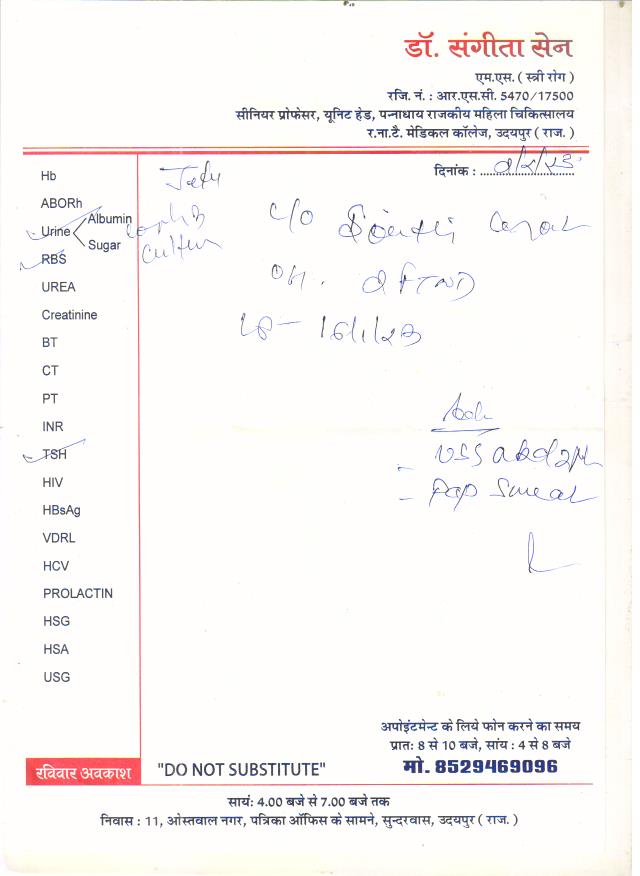 डॉ. संगीता सेन
एम.एस. ( स्त्री रोग )
रजि. नं. : आर.एस.सी. 5470/17500
सीनियर प्रोफेसर, यूनिट हेड, पन्नाधाय राजकीय महिला चिकित्सालय
र.ना.टै. मेडिकल कॉलेज, उदयपुर ( राज. )
दिनांक :
Hb
ABORh
Urine Albumin
Sugar
RBS
UREA
Creatinine
BT
CT
PT
INR
TSH
HIV
HBsAg
VDRL
HCV
PROLACTIN
HSG
HSA
USG
culture
c/o
OH. 2 FTND
16/1/23
Adv
- USG abd
- Pap Smear
अपोइंटमेन्ट के लिये फोन करने का समय
प्रातः 8 से 10 बजे, सांय : 4 से 8 बजे
मो. 8529469096
रविवार अवकाश
"DO NOT SUBSTITUTE"
सायं: 4.00 बजे से 7.00 बजे तक
निवास : 11, ओस्तवाल नगर, पत्रिका ऑफिस के सामने, सुन्दरवास, उदयपुर ( राज. )